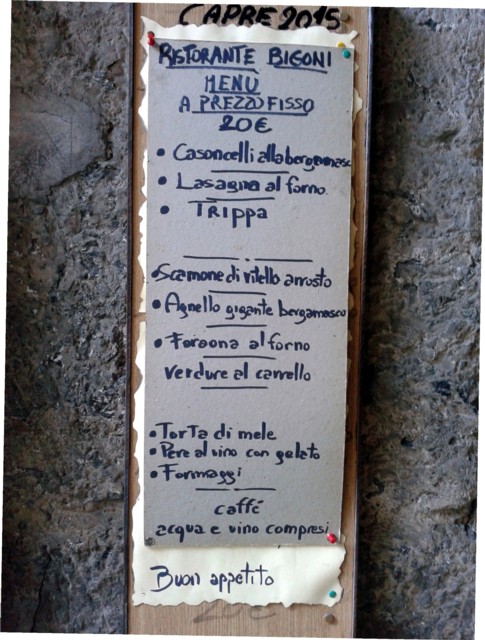 CAPRE 2015
RISTORANTE BIGONI
MENÙ
A PREZZO FISSO
20€
• Casoncelli alla bergamasc
• Lasagna al forno
• TRippa
• Scamone di vitello arrosto
• Agnello gigante bergamasco
• Faraona al forno
verdure al carrello
• Torta di mele
• Pere al vino con gelato
• Formaggi
caffé
acqua e vino compresi
Buon appetito
20€